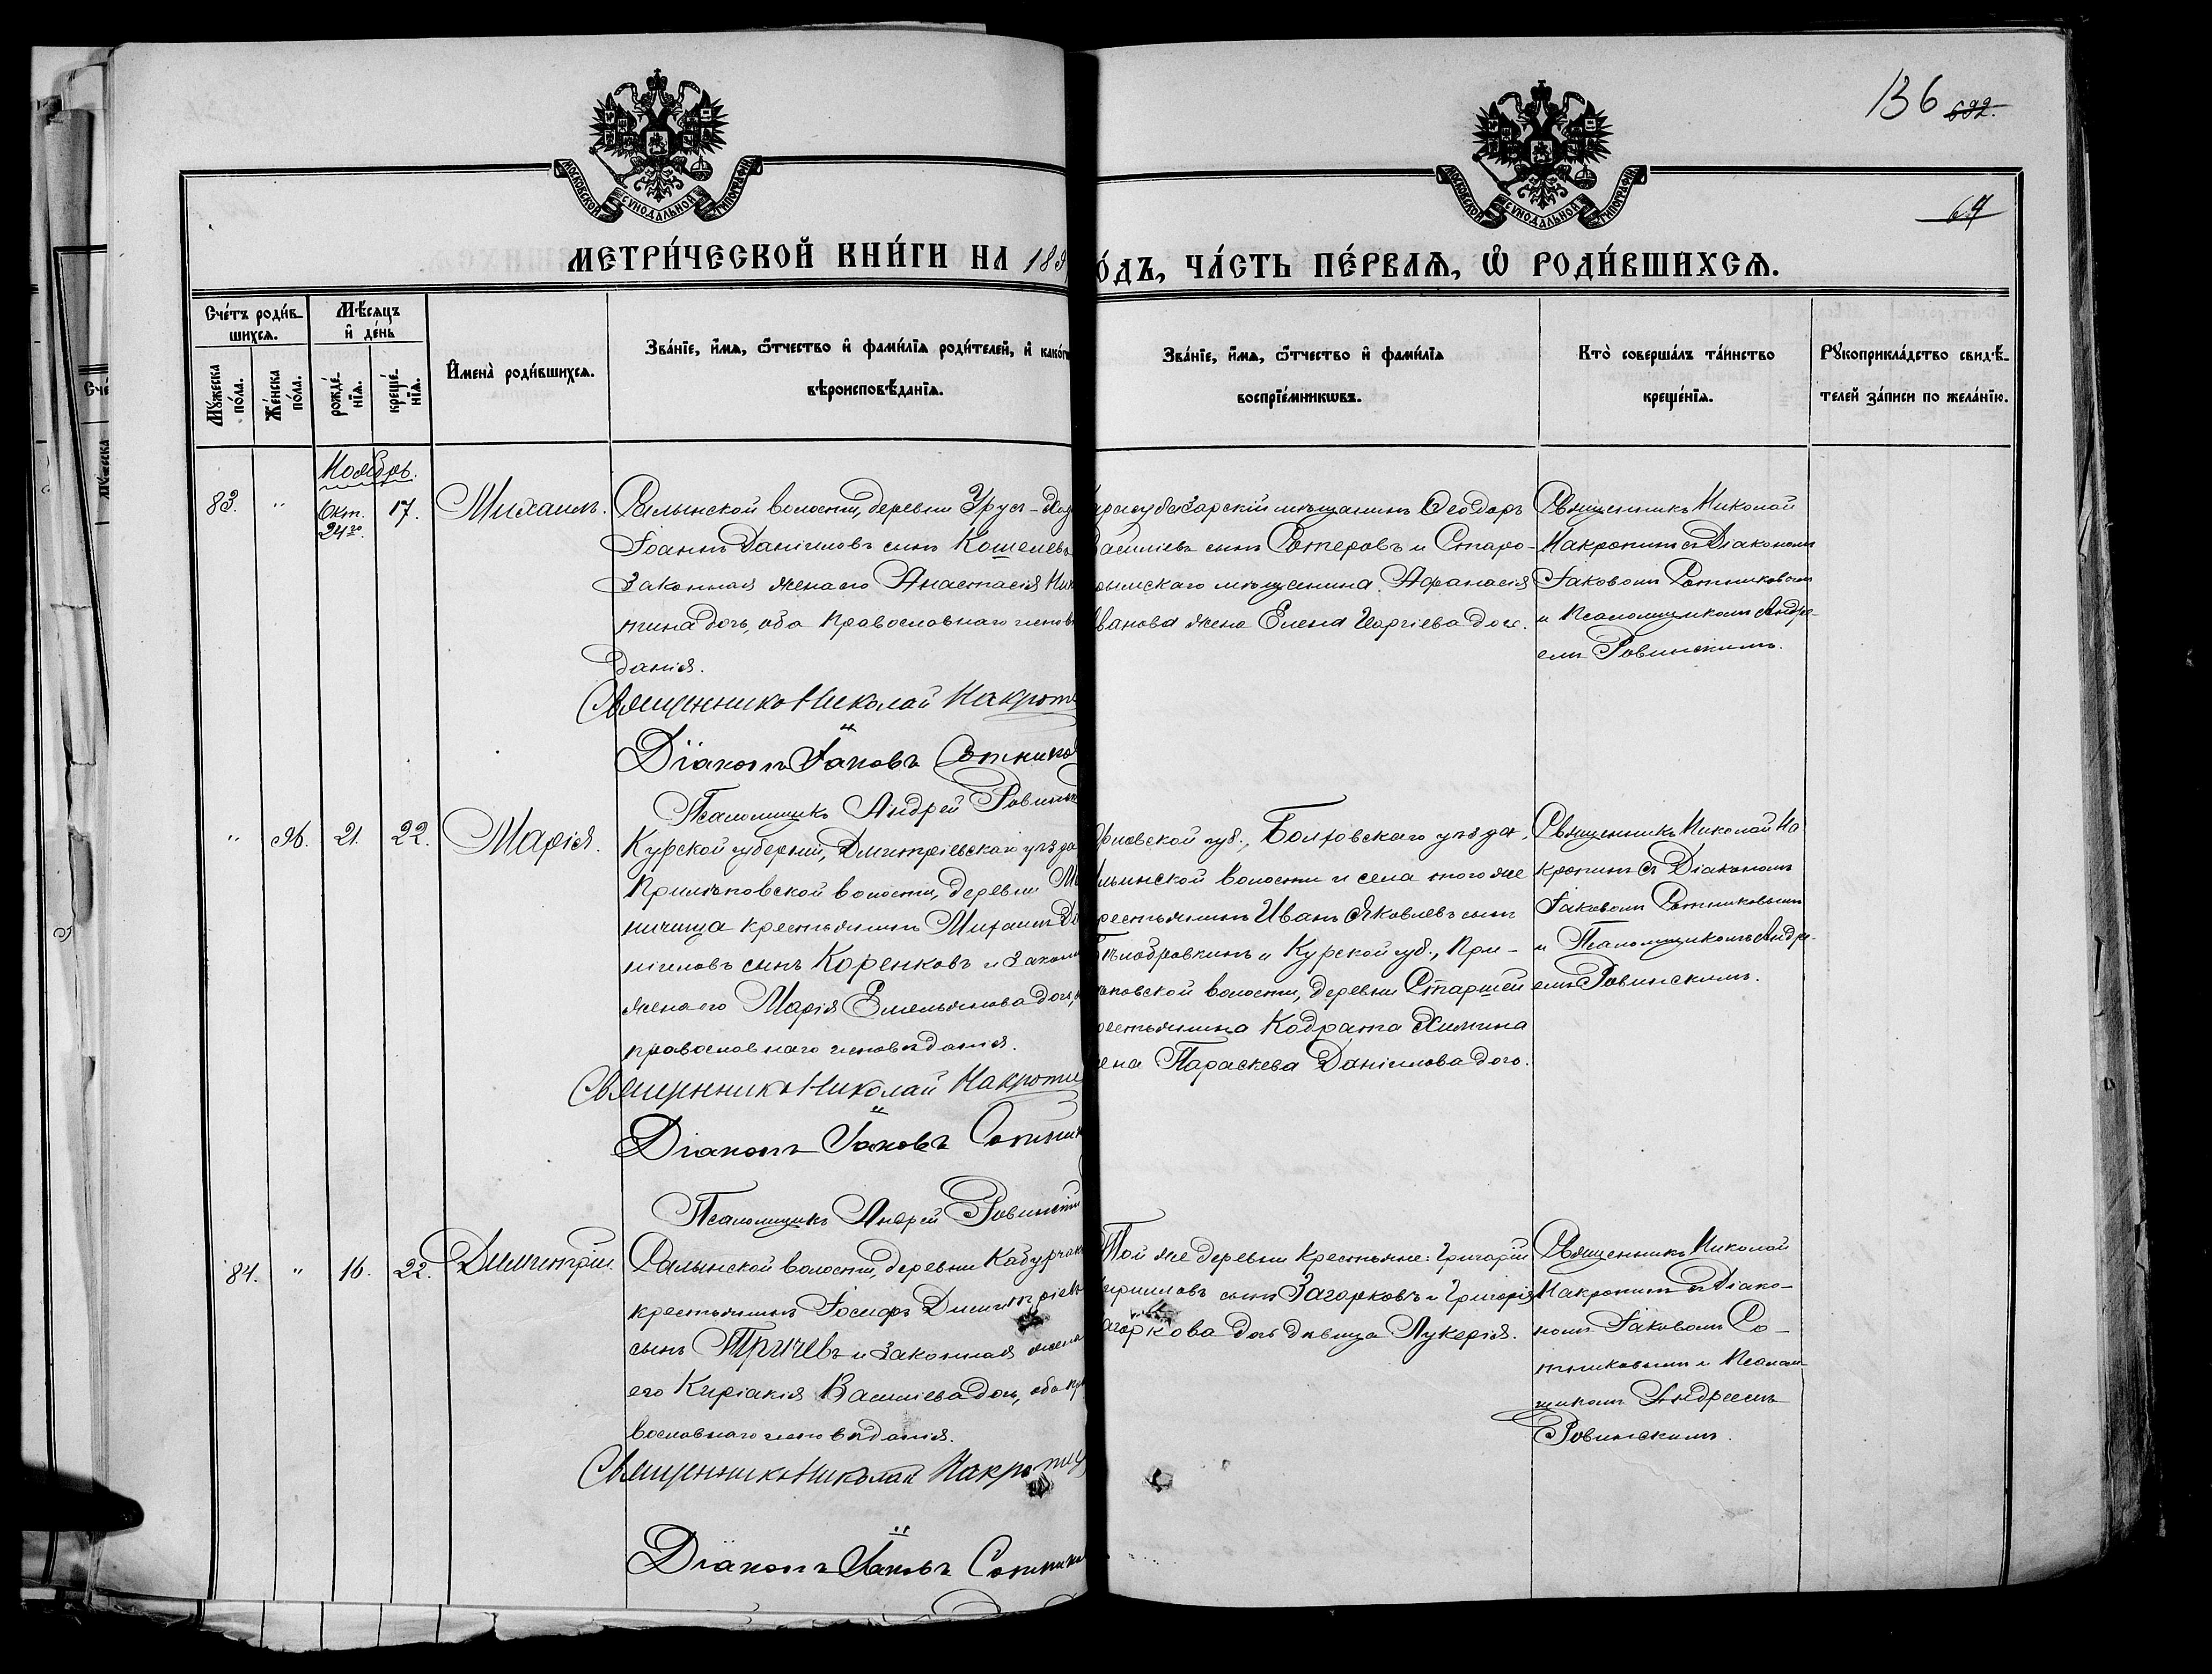 136 692.
64
МОСКОВСКОЙ СѴНОДАЛЬНОЙ ТИПОГРАФІИ
МОСКОВСКОЙ СѴНОДАЛЬНОЙ ТИПОГРАФІИ
МЕТРИ́ЧЕСКОЙ КНИ́ГИ НА 189
О́ДЪ, ЧА́СТЬ ПЕ́РВАѦ, Ѡ҆ РОДИ́ВШИХСѦ.
Сче́тъ роди́в-
шихсѧ.
Мꙋ́жеска по́ла.
Же́нска по́ла.
Мѣ́сѧцъ
и҆ де́нь
рожде́-
нїѧ.
креще́-
нїѧ.
И҆мена̀ роди́вшихсѧ.
Зва́нїе, и҆́мѧ, ѻ҆́тчество и҆ фами́лїѧ роди́телей, и҆ како́г
вѣроисповѣ́данїѧ.
Зва́нїе, и҆́мѧ, ѻ҆́тчество и҆ фами́лїѧ
воспрїе́мникѡвъ.
Кто̀ соверша́лъ та́инство
креще́нїѧ.
Рꙋкоприкла́дство свидѣ́-
телей за́писи по жела́нїю.
Ноябрь.
83.
"
Окт. 24го.
17.
Михаилъ.
Салынской волости, деревни Урус-Ход
Іоаннъ Даніиловъ сынъ Кошелевъ
Законная жена его Анастасія Ник
тина дочь, оба православнаго исповѣ
данія.
Священникъ Николай Макроти
Діаконъ Іаковъ Сотников
Псаломщикъ Андрей Ровинск
арасубазарскій мѣщанинъ Ѳеодоръ
Василіевъ сынъ Сотеровъ и Старо-
крымскаго мѣщанина Афанасія
Иванова жена Елена Георгіева дочь.
Священникъ Николай
Макротинъ съ Діакономъ
Іаковомъ Сотниковымъ
и Псаломщикомъ Андре-
емъ Ровинскимъ.
"
96.
21.
22.
Марія.
Курской губерніи, Дмитріевскаго уѣзда
волости, деревни
крестьянинъ Михаилъ Да
ніиловъ сынъ Коренковъ и закон
жена его Марія Емельянова дочь,
православнаго исповѣданія.
Священникъ Николай Макроти
Діаконъ Іаковъ Сотник
Псаломщикъ Андрей Ровинскій
Орловской губ., Болховскаго уѣзда,
Ильинской волости и села того же
крестьянинъ Иванъ Яковлевъ сынъ
Бѣлобровкинъ и Курской губ., При-
волости, деревни Старшей
крестьянина Кодрата
жена Параскева Даніилова дочь.
Священникъ Николай Ма
кротинъ съ Діакономъ
Іаковомъ Сотниковымъ
и Псаломщикомъ Андре-
емъ Ровинскимъ.
84.
"
16.
22.
Димитрій.
Салынской волости, деревни Кабурчак
крестьянинъ Іосифъ Димитріевъ
сынъ Тричевъ и законная жена
его Киріакія Василіева дочь, оба пра
вославнаго исповѣданія.
Священникъ Николай Макроти
Діаконъ Іаковъ Сотников
Той же деревни крестьяне: Григорій
Кирилловъ сынъ Загорковъ и Григорія
Загоркова дочь дѣвица Лукерія.
Священникъ Николай
Макротинъ съ Діако-
номъ Іаковомъ Со-
тниковымъ и Псалом-
щикомъ Андреемъ
Ровинскимъ.